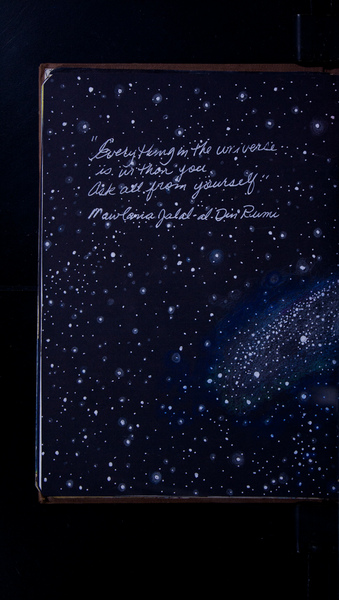 "Everything in the universe
is within you.
Ask all from yourself"
Mawlana Jalal-al-Din Rumi